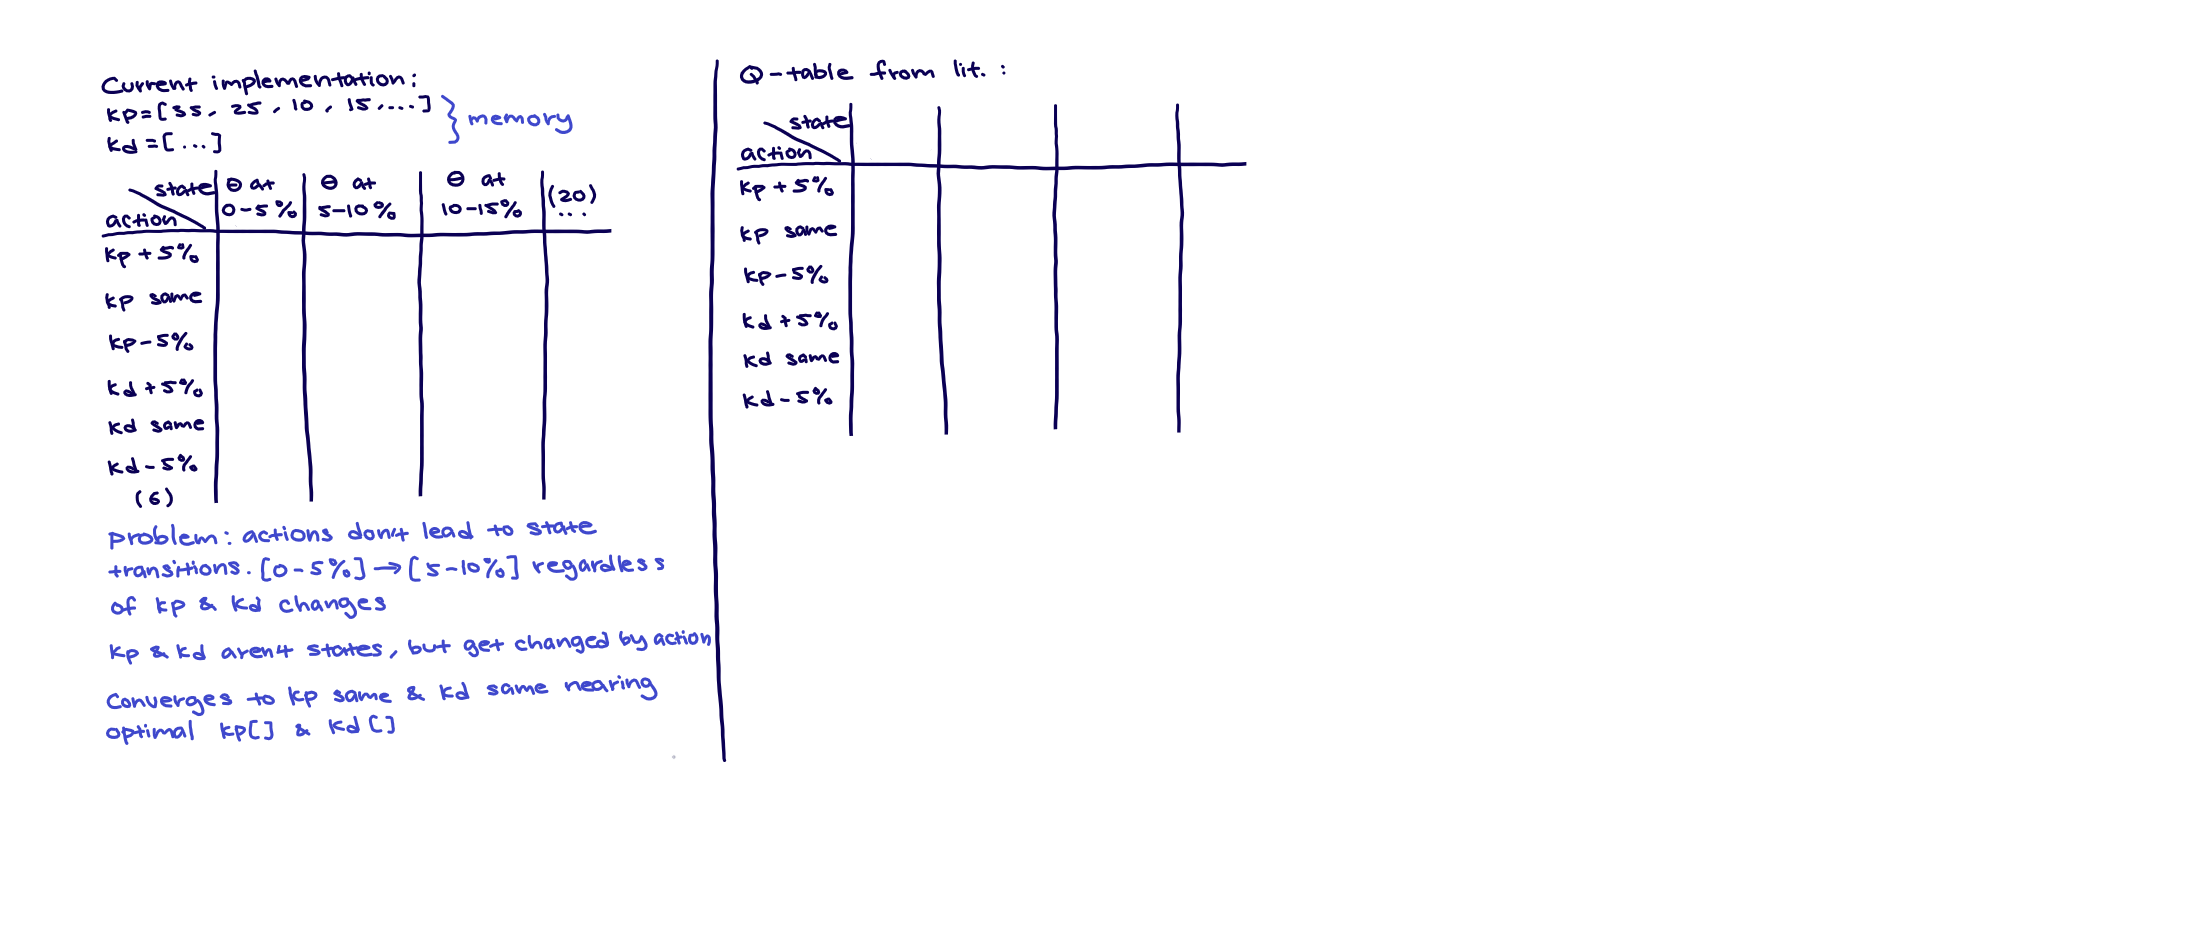 Current implementation:
kp=[35, 25, 10, 15,....]
kd=[...]
} memory
state
action
θ at
0-5%
θ at
5-10%
θ at
10-15%
(20)
...
kp+5%
kp same
kp-5%
kd+5%
kd same
kd-5%
(6)
problem: actions don't lead to state
transitions. [0-5%]→[5-10%] regardless
of kp & kd changes
kp & kd aren't states, but get changed by action
Converges to kp same & kd same nearing
optimal kp[] & kd[]
Q-table from lit.:
state
action
kp+5%
kp same
kp-5%
kd+5%
kd same
kd-5%